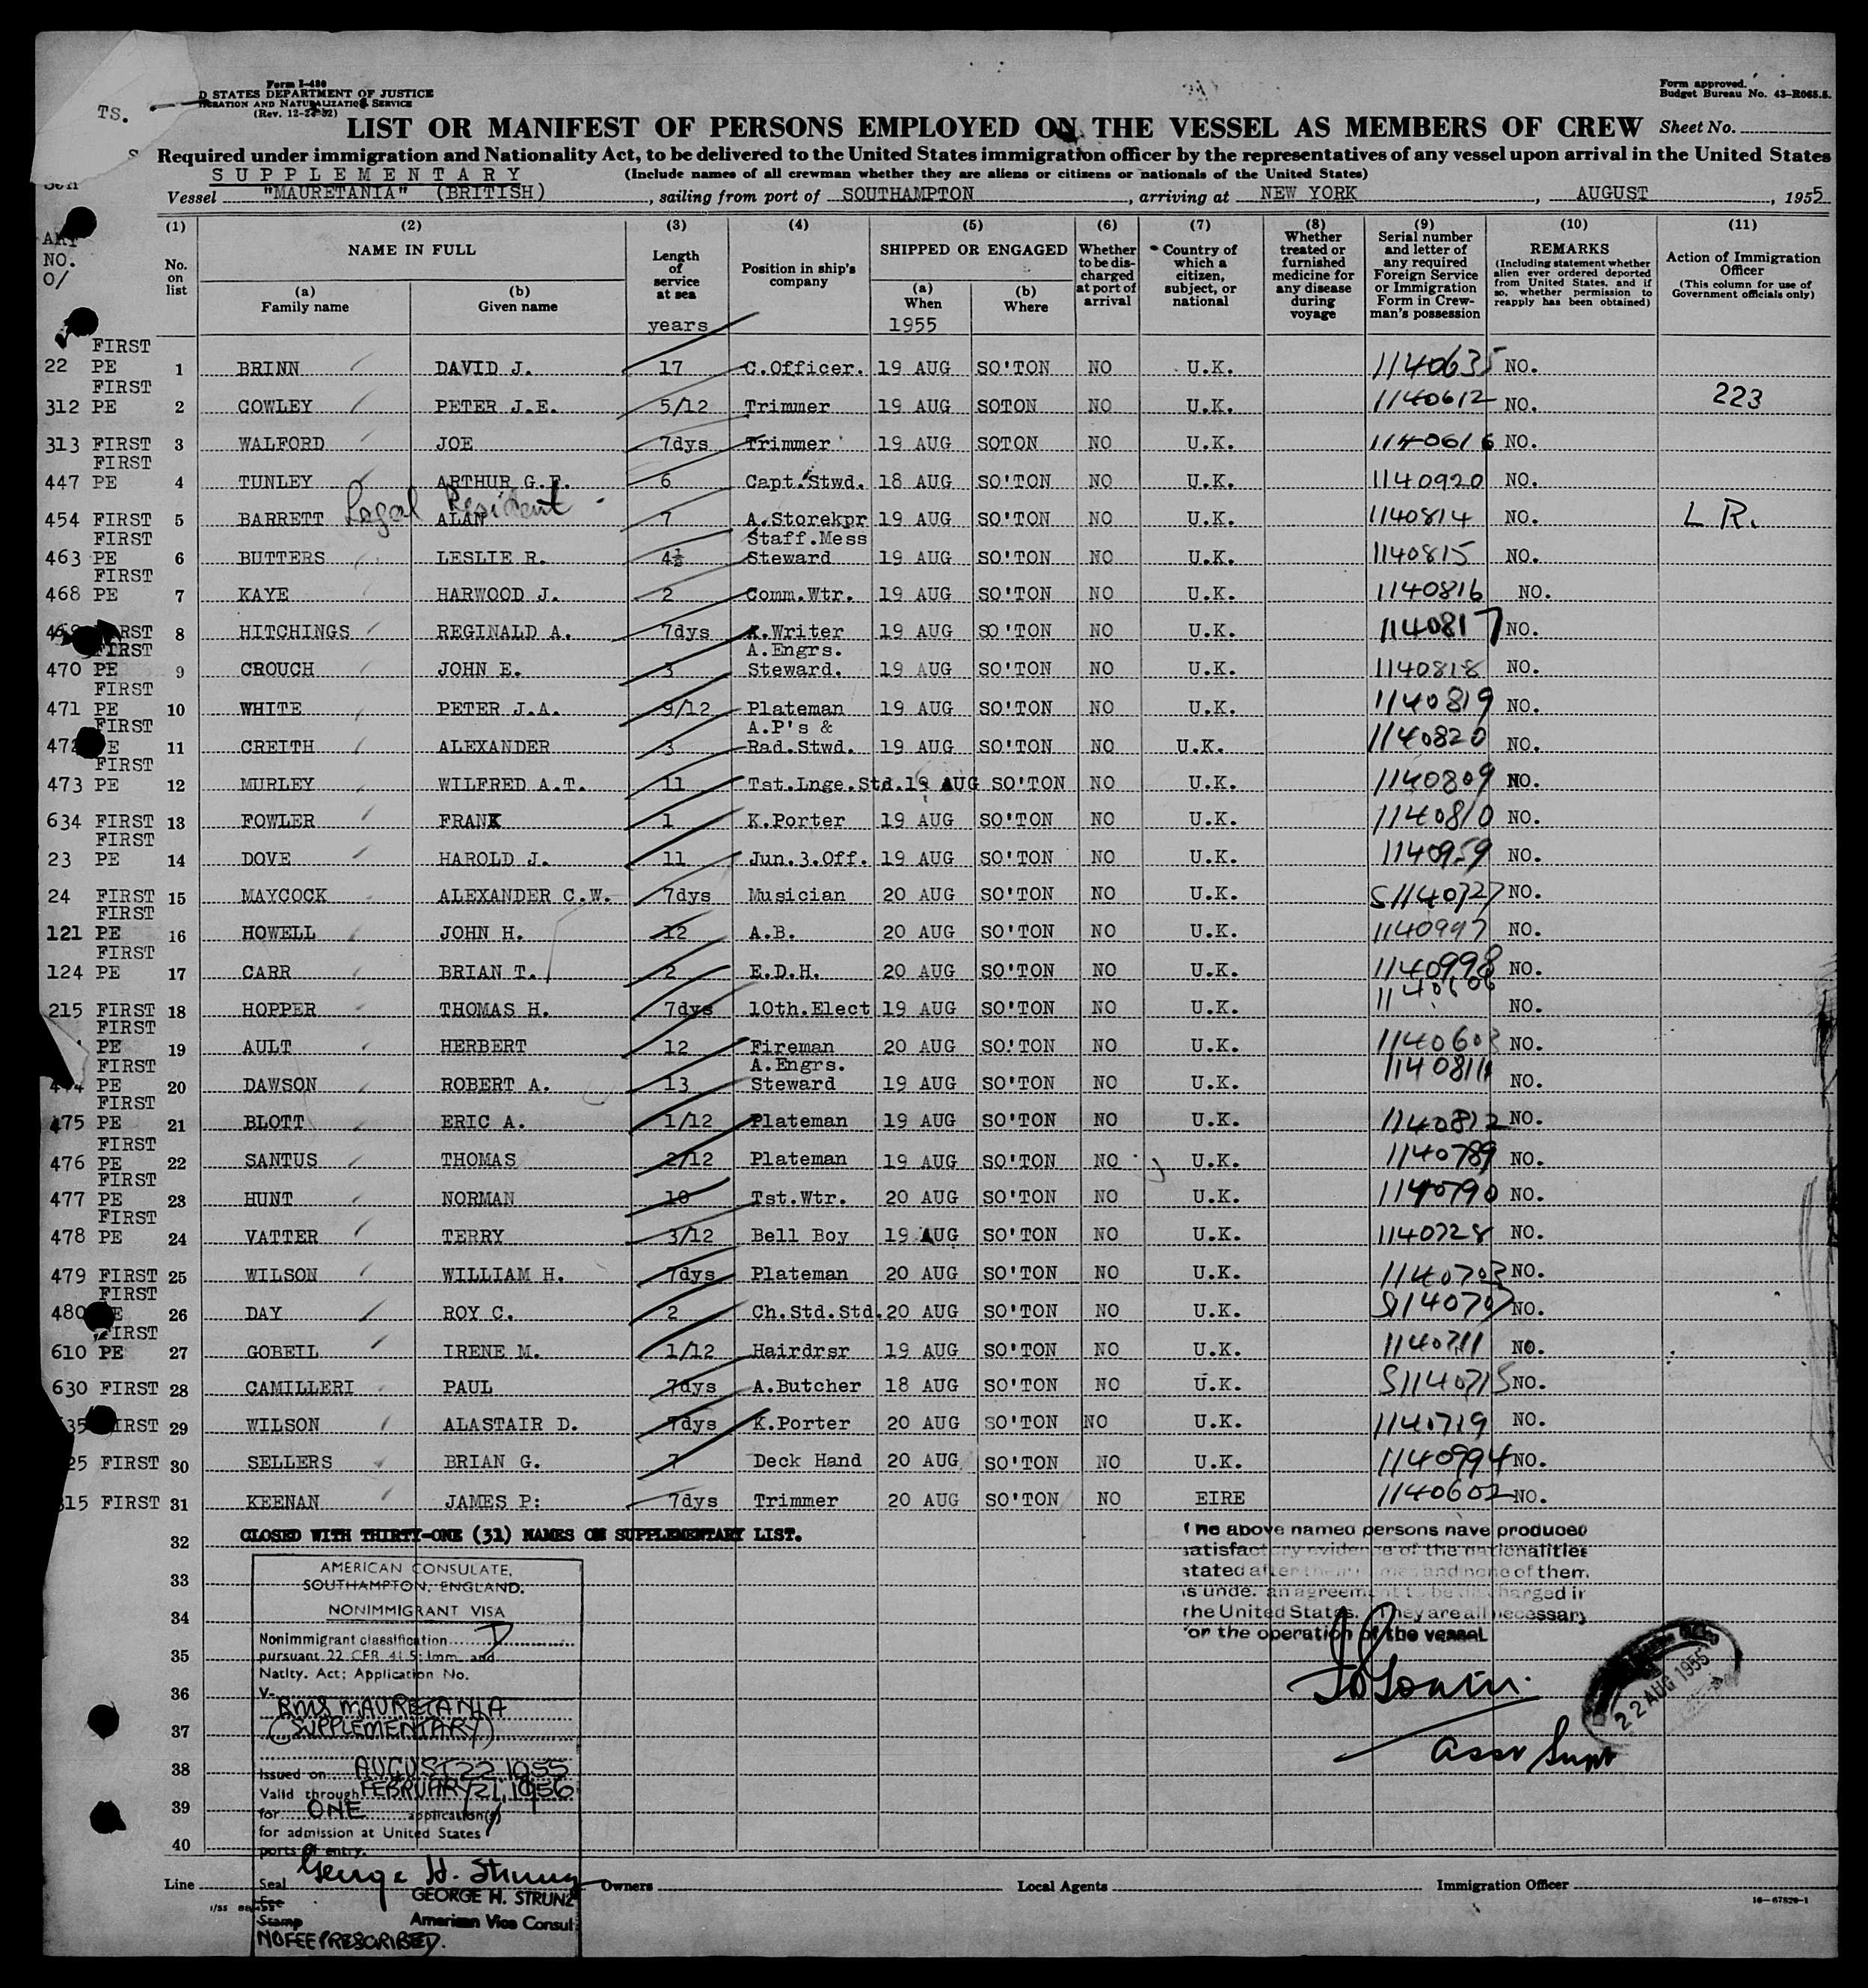 TS.
Form I-480
D STATES DEPARTMENT OF JUSTICE
IGRATION AND NATURALIZATION SERVICE
(Rev. 12-23-52)
Form approved.
Budget Bureau No. 43-R065.5.
LIST OR MANIFEST OF PERSONS EMPLOYED ON THE VESSEL AS MEMBERS OF CREW Sheet No.
Required under immigration and Nationality Act, to be delivered to the United States immigration officer by the representatives of any vessel upon arrival in the United States
SUPPLEMENTARY (Include names of all crewman whether they are aliens or citizens or nationals of the United States)
Vessel "MAURETANIA" (BRITISH), sailing from port of SOUTHAMPTON, arriving at NEW YORK, AUGUST, 1955
NO.
O/
(1) (2) (3) (4) (5) (6) (7) (8) (9) (10) (11)
No. on list
NAME IN FULL
(a) Family name
(b) Given name
Length of service at sea
years
Position in ship's company
SHIPPED OR ENGAGED
(a) When
1955
(b) Where
Whether to be discharged at port of arrival
Country of which a citizen, subject, or national
Whether treated or furnished medicine for any disease during voyage
Serial number and letter of any required Foreign Service or Immigration Form in Crewman's possession
REMARKS
(Including statement whether alien ever ordered deported from United States, and if so, whether permission to reapply has been obtained)
Action of Immigration Officer
(This column for use of Government officials only)
22 FIRST PE 1 BRINN DAVID J. 17 C.Officer. 19 AUG SO'TON NO U.K. 1140635 NO.
312 FIRST PE 2 COWLEY PETER J.E. 5/12 Trimmer 19 AUG SOTON NO U.K. 1140612 NO. 223
313 FIRST 3 WALFORD JOE 7dys Trimmer 19 AUG SOTON NO U.K. 1140616 NO.
447 FIRST PE 4 TUNLEY ARTHUR G.F. 6 Capt.Stwd. 18 AUG SO'TON NO U.K. 1140920 NO.
Legal Resident
454 FIRST 5 BARRETT ALAN 7 A.Storekpr 19 AUG SO'TON NO U.K. 1140814 NO. L R.
463 FIRST PE 6 BUTTERS LESLIE R. 4½ Staff.Mess Steward 19 AUG SO'TON NO U.K. 1140815 NO.
468 FIRST PE 7 KAYE HARWOOD J. 2 Comm.Wtr. 19 AUG SO'TON NO U.K. 1140816 NO.
8 HITCHINGS REGINALD A. 7dys K.Writer 19 AUG SO'TON NO U.K. 1140817 NO.
470 FIRST PE 9 CROUCH JOHN E. 3 A.Engrs. Steward. 19 AUG SO'TON NO U.K. 1140818 NO.
471 FIRST PE 10 WHITE PETER J.A. 9/12 Plateman 19 AUG SO'TON NO U.K. 1140819 NO.
472 FIRST PE 11 CREITH ALEXANDER 3 A.P's & Rad.Stwd. 19 AUG SO'TON NO U.K. 1140820 NO.
473 FIRST PE 12 MURLEY WILFRED A.T. 11 Tst.Lnge.Std. 19 AUG SO'TON NO U.K. 1140809 NO.
634 FIRST 13 FOWLER FRANK 1 K.Porter 19 AUG SO'TON NO U.K. 1140810 NO.
23 FIRST PE 14 DOVE HAROLD J. 11 Jun.3.Off. 19 AUG SO'TON NO U.K. 1140959 NO.
24 FIRST 15 MAYCOCK ALEXANDER C.W. 7dys Musician 20 AUG SO'TON NO U.K. S1140727 NO.
121 FIRST PE 16 HOWELL JOHN H. 12 A.B. 20 AUG SO'TON NO U.K. 1140997 NO.
124 FIRST PE 17 CARR BRIAN T. 2 E.D.H. 20 AUG SO'TON NO U.K. 1140998 NO.
215 FIRST 18 HOPPER THOMAS H. 7dys 10th.Elect 19 AUG SO'TON NO U.K. 1140606 NO.
FIRST PE 19 AULT HERBERT 12 Fireman 20 AUG SO'TON NO U.K. 1140603 NO.
FIRST PE 20 DAWSON ROBERT A. 13 A.Engrs. Steward 19 AUG SO'TON NO U.K. 1140811 NO.
475 FIRST PE 21 BLOTT ERIC A. 1/12 Plateman 19 AUG SO'TON NO U.K. 1140812 NO.
476 FIRST PE 22 SANTUS THOMAS 2/12 Plateman 19 AUG SO'TON NO U.K. 1140789 NO.
477 FIRST PE 23 HUNT NORMAN 10 Tst.Wtr. 20 AUG SO'TON NO U.K. 1140790 NO.
478 FIRST PE 24 VATTER TERRY 3/12 Bell Boy 19 AUG SO'TON NO U.K. 1140728 NO.
479 FIRST 25 WILSON WILLIAM H. 7dys Plateman 20 AUG SO'TON NO U.K. 1140703 NO.
480 FIRST PE 26 DAY ROY C. 2 Ch.Std.Std. 20 AUG SO'TON NO U.K. S114070 NO.
610 FIRST PE 27 GOBEIL IRENE M. 1/12 Hairdrsr 19 AUG SO'TON NO U.K. 1140711 NO.
630 FIRST 28 CAMILLERI PAUL 7dys A.Butcher 18 AUG SO'TON NO U.K. S1140715 NO.
35 FIRST 29 WILSON ALASTAIR D. 7dys K.Porter 20 AUG SO'TON NO U.K. 1140719 NO.
25 FIRST 30 SELLERS BRIAN G. 7 Deck Hand 20 AUG SO'TON NO U.K. 1140994 NO.
315 FIRST 31 KEENAN JAMES P: 7dys Trimmer 20 AUG SO'TON NO EIRE 1140602 NO.
32 CLOSED WITH THIRTY-ONE (31) NAMES ON SUPPLEMENTARY LIST.
33
34
35
36
37
38
39
40
AMERICAN CONSULATE,
SOUTHAMPTON, ENGLAND.
NONIMMIGRANT VISA
Nonimmigrant classification D
pursuant 22 CFR 41.5; Imm. and
Natlty. Act; Application No.
V-
RMS MAURETANIA
(SUPPLEMENTARY)
Issued on AUGUST 22 1955
Valid through FEBRUARY 21, 1956
for ONE application(s)
for admission at United States
ports of entry.
George H. Strunz
Seal
GEORGE H. STRUNZ
See
Stamp
American Vice Consul
NO FEE PRESCRIBED.
The above named persons have produced
satisfactory evidence of the nationalities
stated after their names and none of them
is under an agreement to be discharged in
the United States. They are all necessary
for the operation of the vessel
Asst Supt
22 AUG 1955
Line Owners Local Agents Immigration Officer
1/55
16-67829-1